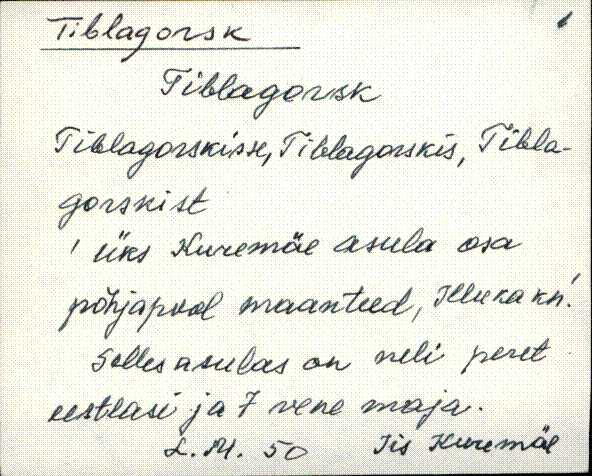 Tiblagorsk
Tiblagorsk
Tiblagorskisse, Tiblagorskis, Tibla-
gorskist
' üks Kuremäe asula osa
põhjapool maanteed, Illuka kn.'
Selles asulas on neli peret
eestlasi ja 7 vene maja.
L. M. 50 Iis Kuremäe